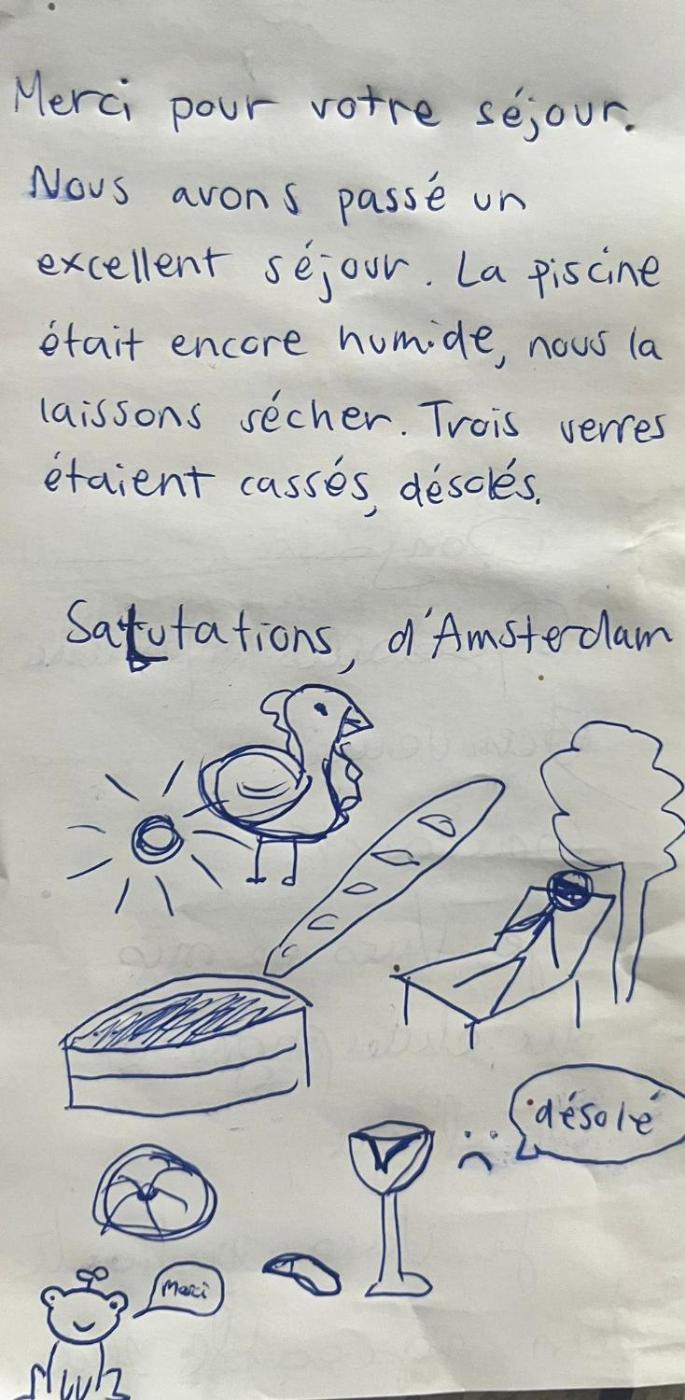 Merci pour votre séjour.
Nous avons passé un
excellent séjour. La piscine
était encore humide, nous la
laissons sécher. Trois verres
étaient cassés, désolés.
Salutations, d'Amsterdam
désolé
Merci